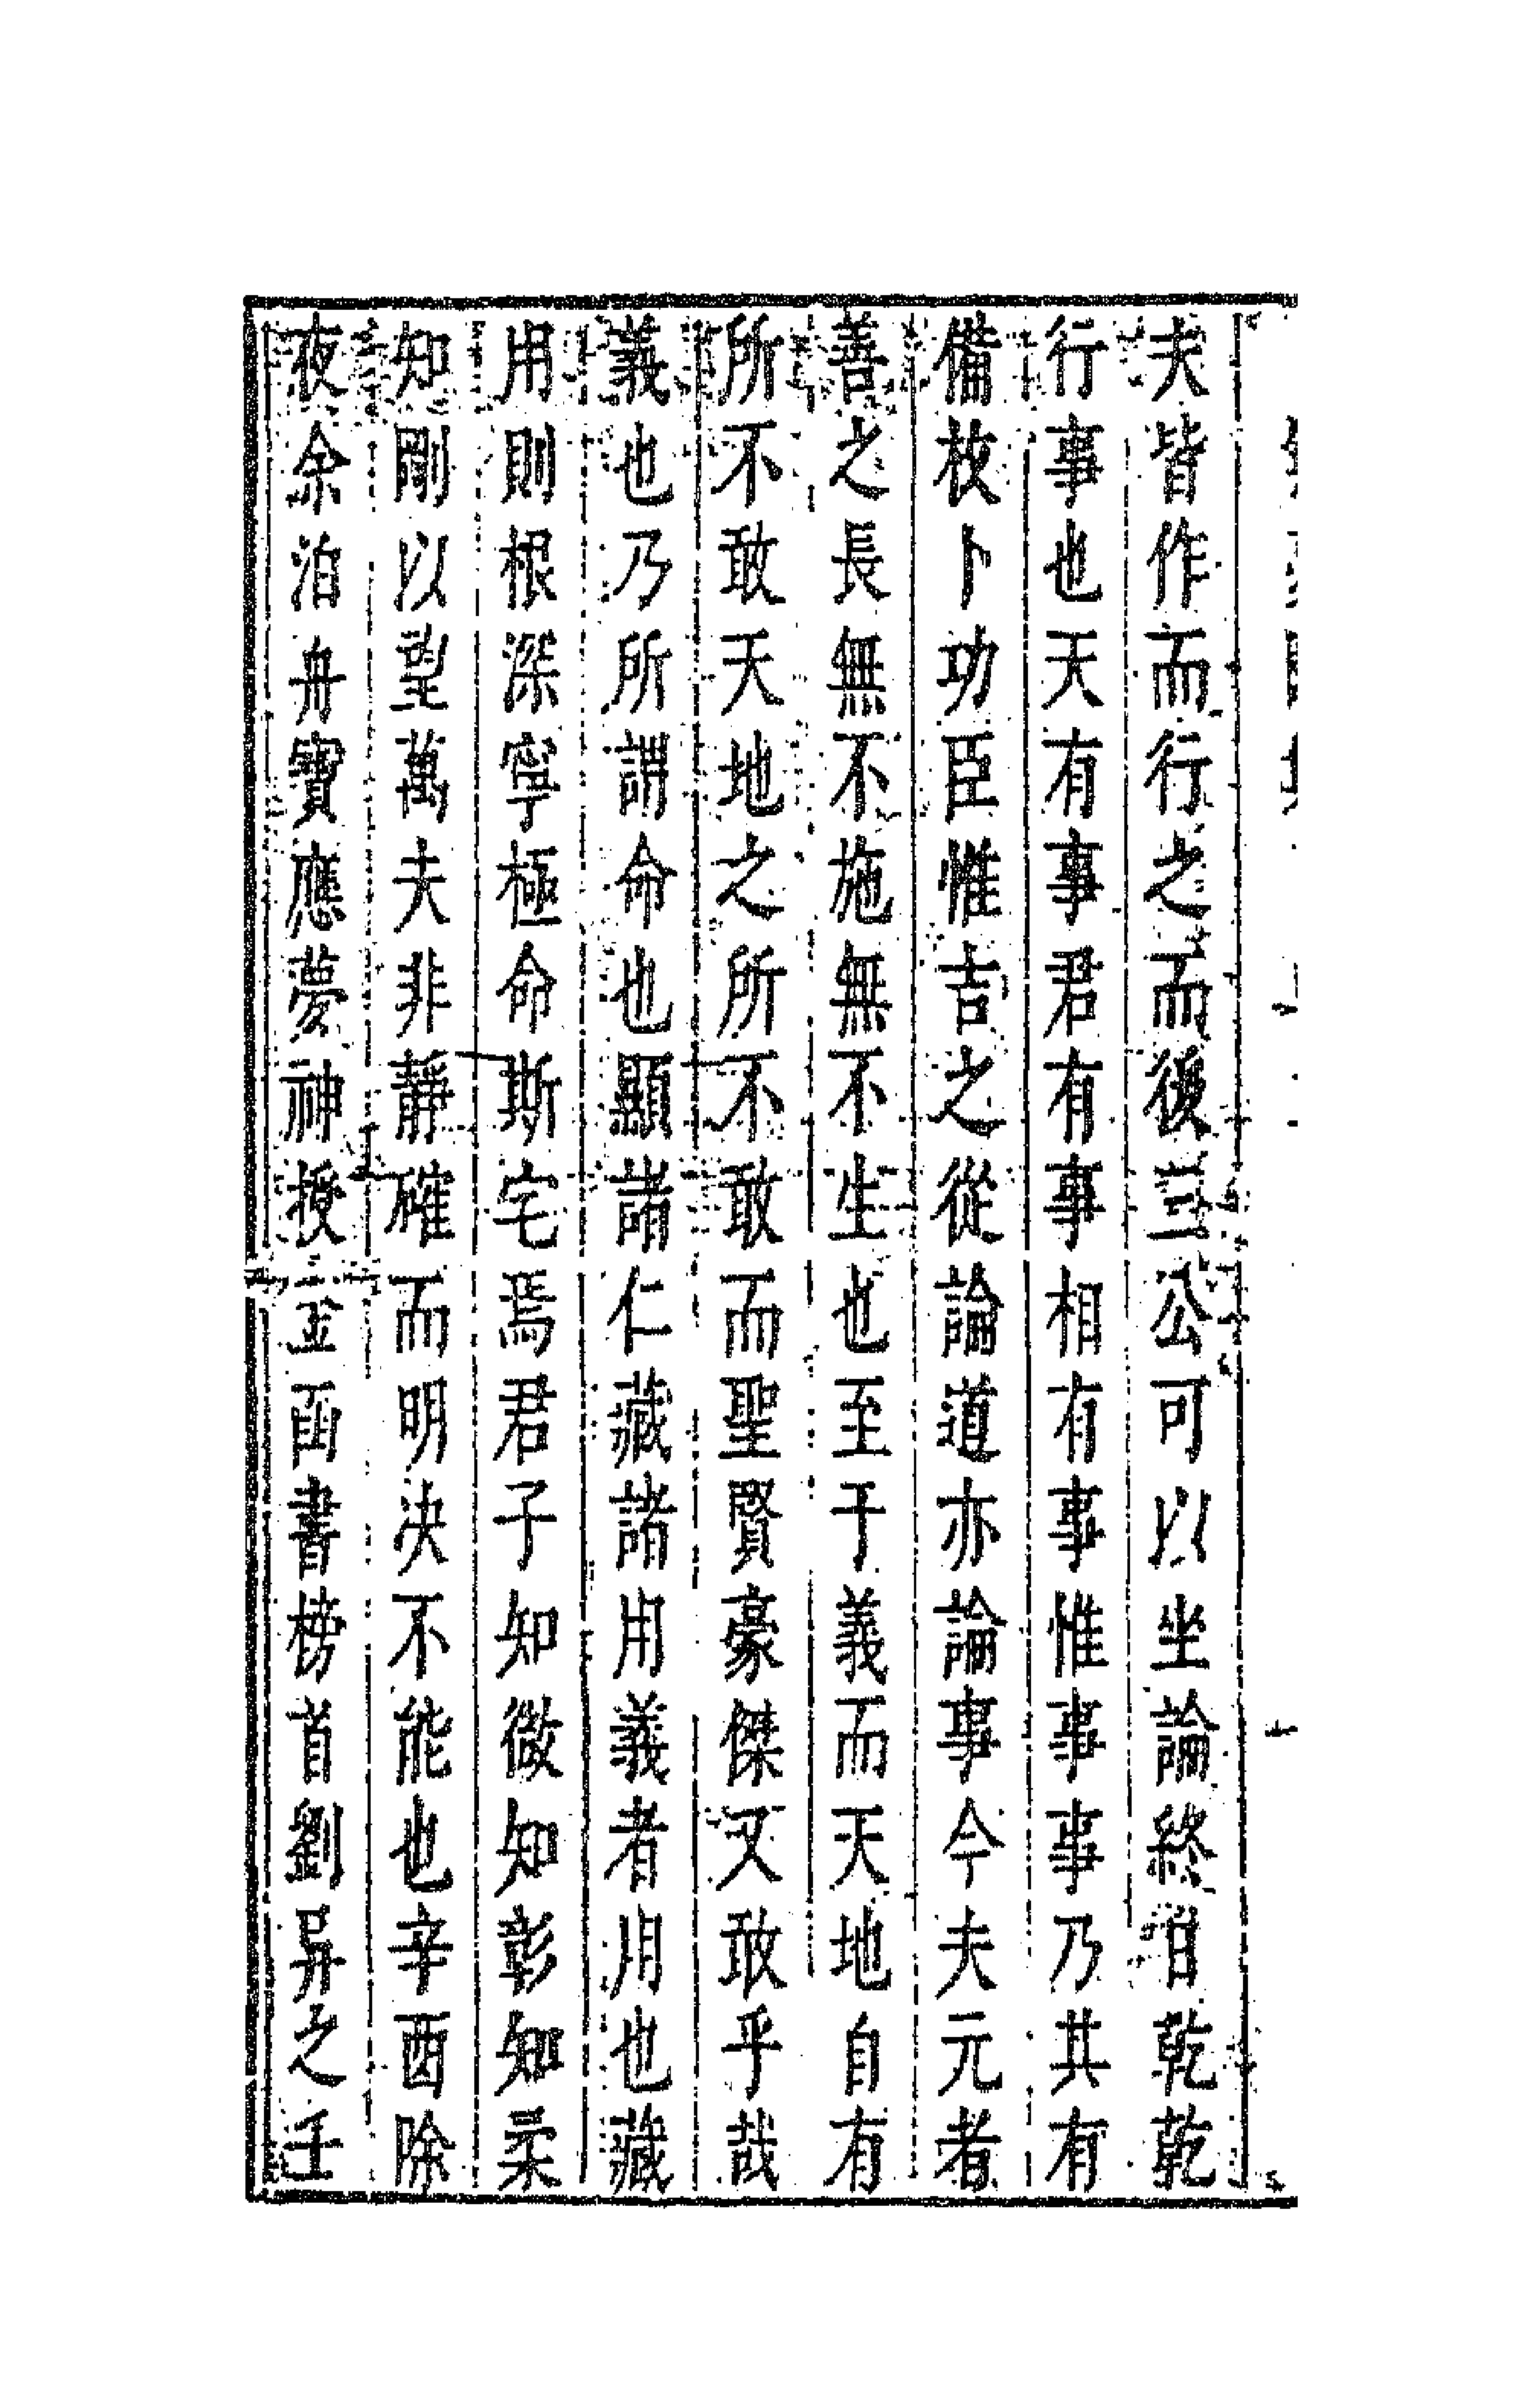 夫皆作而行之而後三公可以坐論終日乾乾
行事也天有事君有事相有事惟事事乃其有
備枚卜功臣惟吉之從論道亦論事今夫元者
善之長無不施無不生也至于義而天地自有
所不敢天地之所不敢而聖賢豪傑又敢乎哉
義也乃所謂命也顯諸仁藏諸用義者用也藏
用則根深寧極命斯宅焉君子知微知彰知柔
知剛以望萬夫非靜確而明决不能也辛酉除
夜余泊舟寶應夢神授金函書榜首劉昇之壬